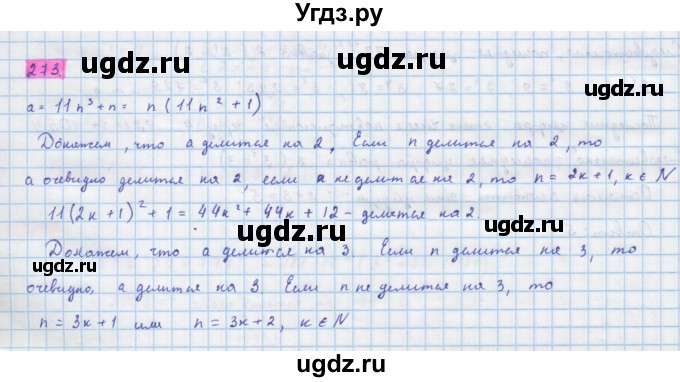 Угдз.ру
273.
a = 11n³ + n = n(11n² + 1)
Докажем, что a делится на 2, Если n делится на 2, то
a очевидно делится на 2, если n не делится на 2, то n = 2k+1, k ∈ N
11(2k+1)² + 1 = 44k² + 44k + 12 - делится на 2.
Докажем, что a делится на 3. Если n делится на 3, то
очевидно, a делится на 3. Если n не делится на 3, то
n = 3k+1 или n = 3k+2, k ∈ N
ugdz.ru
ugdz.ru
ugdz.ru
ugdz.ru
ugdz.ru
ugdz.ru
ugdz.ru
ugdz.ru
ugdz.ru